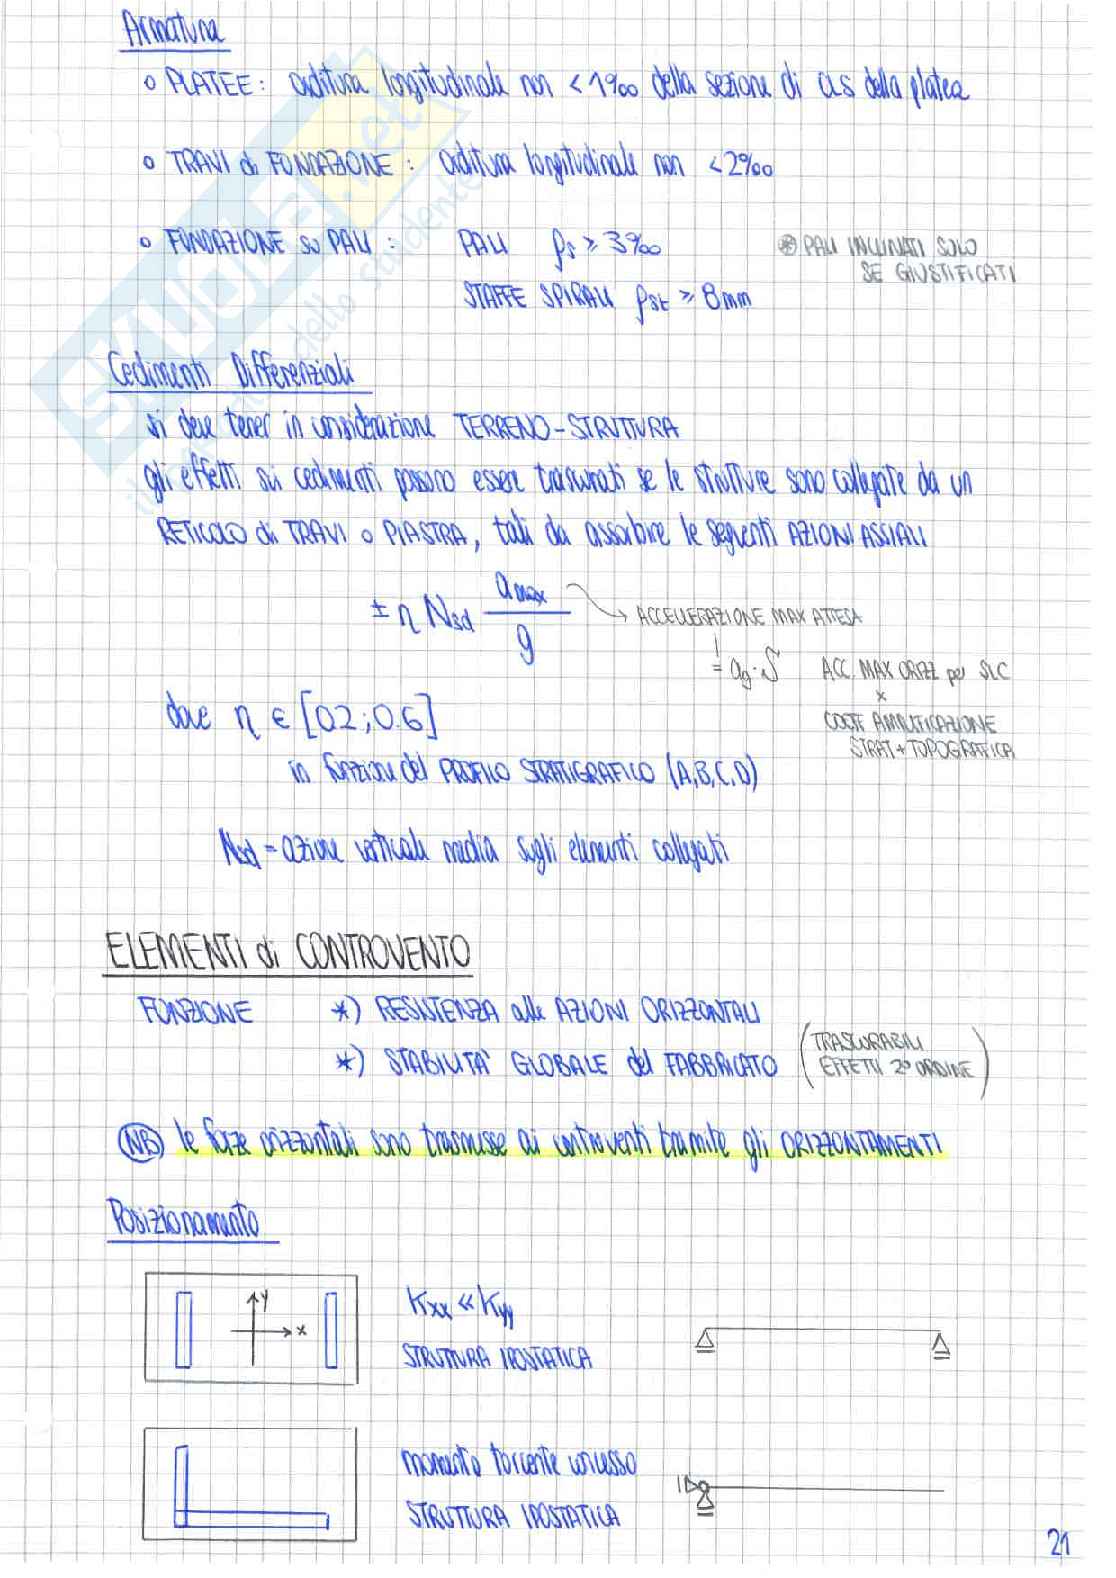 Armatura
o PLATEE: orditura longitudinale non < 1‰ della sezione di cls della platea
o TRAVI di FONDAZIONE: orditura longitudinale non < 2‰
o FONDAZIONE su PALI: PALI ρs ≥ 3‰ ⊛ PALI INCLINATI SOLO
SE GIUSTIFICATI
STAFFE SPIRALI ρst ≥ 8mm
Cedimenti Differenziali
si deve tener in considerazione TERRENO-STRUTTURA
gli effetti sui cedimenti possono essere trascurati se le strutture sono collegate da un
RETICOLO di TRAVI o PIASTRA, tali da assorbire le seguenti AZIONI ASSIALI
± η Nsd amax/g → ACCELLERAZIONE MAX ATTESA
= ag·S ACC. MAX ORIZZ per SLC
x
COEFF AMPLIFICAZIONE
STRAT + TOPOGRAFICA
dove η ∈ [0.2; 0.6]
in funzione del PROFILO STRATIGRAFICO (A,B,C,D)
Nsd = azione verticale media sugli elementi collegati
ELEMENTI di CONTROVENTO
FUNZIONE *) RESISTENZA alle AZIONI ORIZZONTALI
*) STABILITA' GLOBALE del FABBRICATO (TRASCURABILI
EFFETTI 2° ORDINE)
NB le forze orizzontali sono trasmesse ai controventi tramite gli ORIZZONTAMENTI
Posizionamento
y
x
Kxx << Kyy
STRUTTURA IPOSTATICA
momento torcente
STRUTTURA IPOSTATICA
21
skuola.net
il portale dello studente